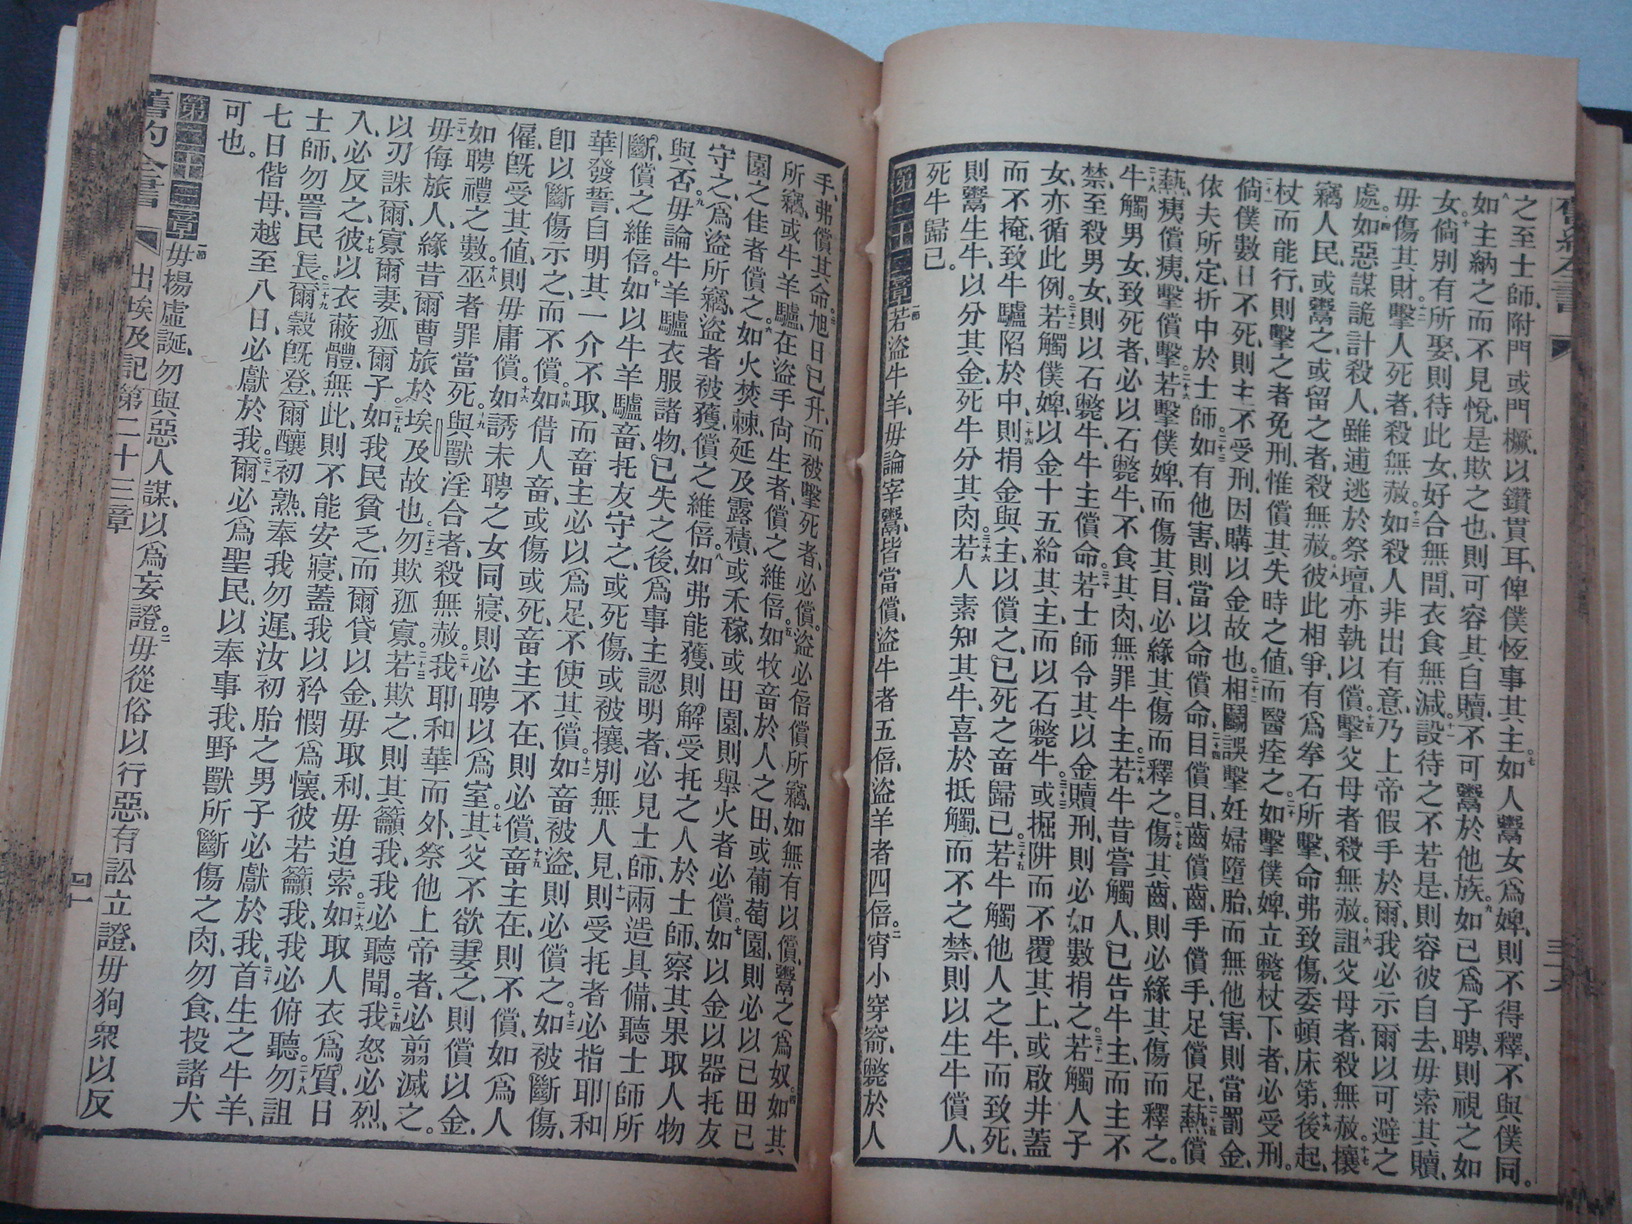 之至士師、附門或門橛、以鑽貫耳、俾僕恆事其主。七如人鬻女爲婢、則不得釋、不與僕同。
八如主納之、而不見悅、是欺之也、則可容其自贖、不可鬻於他族。九如已爲子聘、則視之如
女。十倘別有所娶、則待此女、好合無間、衣食無減。十一設待之不若是、則容彼自去、毋索其贖、
毋傷其財。十二擊人死者、殺無赦。十三如殺人非出有意、乃上帝假手於爾、我必示爾以可避之
處。十四如惡謀詭計殺人、雖逋逃於祭壇、亦執以償。十五擊父母者、殺無赦。十六詛父母者、殺無赦。十七攘
竊人民、或鬻之、或留之者、殺無赦。十八彼此相爭、有爲拳石所擊、命弗致傷、委頓床笫。十九後起、
杖而能行、則擊之者免刑、惟償其失時之值、而醫痊之。二十如擊僕婢、立斃杖下者、必受刑。
二一倘僕數日不死、則主不受刑、因購以金故也。二十二相鬬、誤擊妊婦、墮胎、而無他害、則當罰金、
依夫所定、折中於士師。二十三如有他害、則當以命償命、二十四目償目、齒償齒、手償手、足償足、二十五爇償
爇、痍償痍、擊償擊。二十六若擊僕婢、而傷其目、必緣其傷而釋之。二十七傷其齒、則必緣其傷而釋之。
二十八牛觸男女、致死者、必以石斃牛、不食其肉、無罪牛主。二十九若牛昔嘗觸人、已告牛主、而主不
禁、至殺男女、則以石斃牛、牛主償命。三十若士師令其以金贖刑、則必如數捐之。三十一若觸人子
女、亦循此例。三十二若觸僕婢、以金十五給其主、而以石斃牛。三十三或掘阱而不覆其上、或啟井蓋
而不掩、致牛驢陷於中、三十四則捐金與主以償之、已死之畜歸己。三十五若牛觸他人之牛、而致死、
則鬻生牛、以分其金、死牛分其肉。三十六若人素知其牛、喜於抵觸、而不之禁、則以生牛償人、
死牛歸己。
第二十二章 一節若盜牛羊、毋論宰鬻、皆當償、盜牛者五倍、盜羊者四倍。二宵小穿窬、斃於人
三十六
手、弗償其命。三旭日已升、而被擊死者、必償。盜必倍償所竊、如無有以償、鬻之爲奴。四如其
所竊、或牛羊驢、在盜手尚生者、償之維倍。五如牧畜於人之田、或葡萄園、則必以己田己
園之佳者償之。六如火焚棘、延及露積、或禾稼、或田園、則舉火者必償。七如以金以器托友
守之、爲盜所竊、盜者被獲、償之維倍。八如弗能獲、則解受托之人於士師、察其果取人物
與否。九毋論牛羊驢衣服諸物、已失之後、爲事主認明者、必見士師、兩造具備、聽士師所
斷、償之維倍。十如以牛羊驢畜、托友守之、或死傷、或被攘、別無人見、十一則受托者必指耶和
華發誓、自明其一介不取、而畜主必以爲足、不使其償。十二如畜被盜、則必償之。十三如被斷傷、
卽以斷傷示之、而不償。十四如借人畜、或傷或死、畜主不在、則必償、十五畜主在、則不償、如爲人
僱、旣受其值、則毋庸償。十六如誘未聘之女同寢、則必聘以爲室。十七其父不欲妻之、則償以金、
如聘禮之數。十八巫者罪當死。十九與獸淫合者、殺無赦。二十我耶和華而外、祭他上帝者、必翦滅之。
二十一毋侮旅人、緣昔爾曹旅於埃及故也。二十二勿欺孤寡、二十三若欺之、則其籲我、我必聽聞、二十四我怒必烈、
以刃誅爾、寡爾妻、孤爾子。二十五如我民貧乏、而爾貸以金、毋取利、毋迫索。二十六如取人衣爲質、日
入必反之、二十七彼以衣蔽體、無此、則不能安寢、蓋我以矜憫爲懷、彼若籲我、我必俯聽。二十八勿詛
士師、勿詈民長。二十九爾穀旣登、爾釀初熟、奉我勿遲、汝初胎之男子必獻於我、三十首生之牛羊、
七日偕母、越至八日、必獻於我。三十一爾必爲聖民、以奉事我、野獸所斷傷之肉、勿食、投諸犬
可也。
第二十三章 一節毋揚虛誕、勿與惡人謀、以爲妄證。二毋從俗以行惡、有訟立證、毋狥衆以反
舊約全書 出埃及記第二十三章 四一